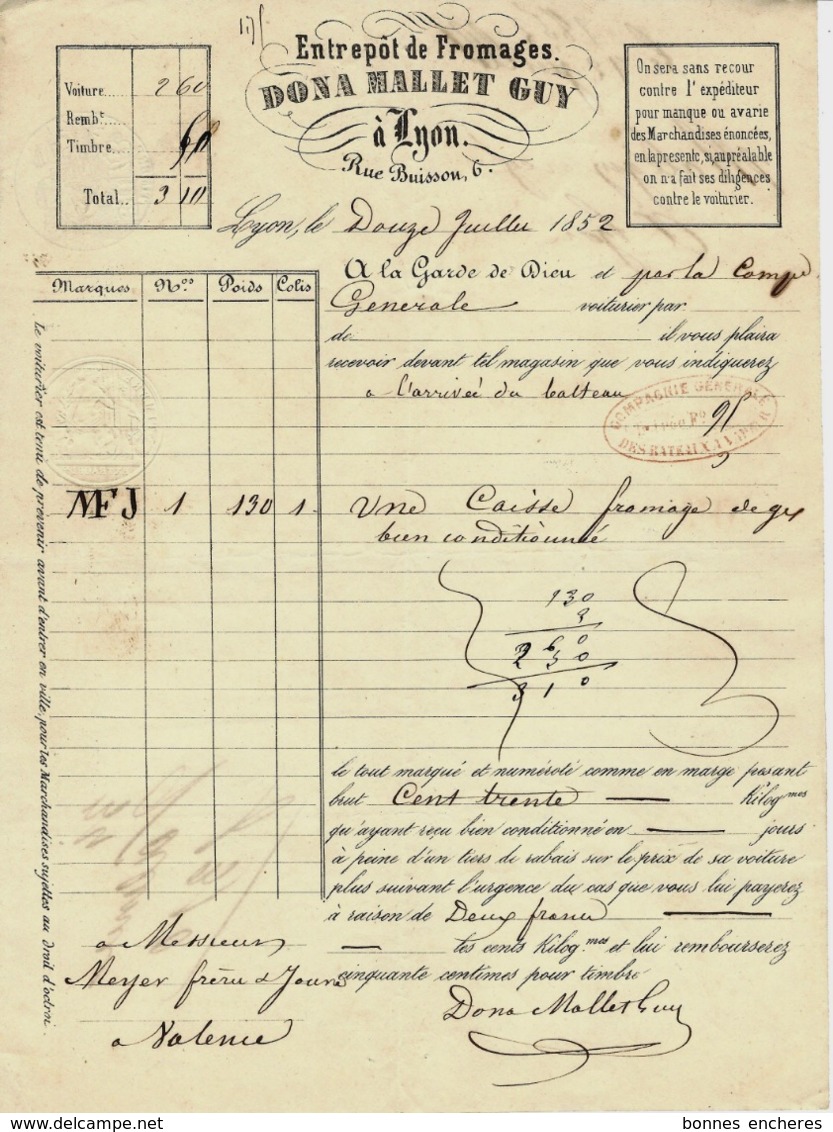 Entrepôt de Fromages.
DONA MALLET GUY
à Lyon.
Rue Buisson, 6.
Voiture..... 2 60
Remb.t.....
Timbre... 50
Total.. 3 10
On sera sans recour
contre l'expéditeur
pour manque ou avarie
des Marchandises énoncées,
en la presente, si, au préalable
on n'a fait ses diligences
contre le voiturier.
Lyon, le Douze Juillet 1852
A la Garde de Dieu et par la Compe
Generale voiturier par
de il vous plaira
recevoir devant tel magasin que vous indiquerez
a l'arrivée du batteau
COMPAGNIE GÉNÉRALE
DES BATEAUX A VAPEUR
Marques N.os Poids Colis
MFJ 1 130 1
Une Caisse fromage de gx
bien conditionnée
130
2
2 6 0
2 5 0
3 1 0
le tout marqué et numéroté comme en marge pesant
brut Cent trente Kilog.mes
qu'ayant reçu bien conditionné en jours
à peine d'un tiers de rabais sur le prix de sa voiture
plus suivant l'urgence du cas que vous lui payerez
à raison de Deux francs
les cents Kilog.mes et lui rembourserez
cinquante centimes pour timbre
Dona Mallet Guy
a Messieurs
Meyer frères & Jouve
a Valence
Le voiturier est tenu de prevenir avant d'entrer en ville, pour les Marchandises sujettes au droit d'octroi.
bonnes encheres